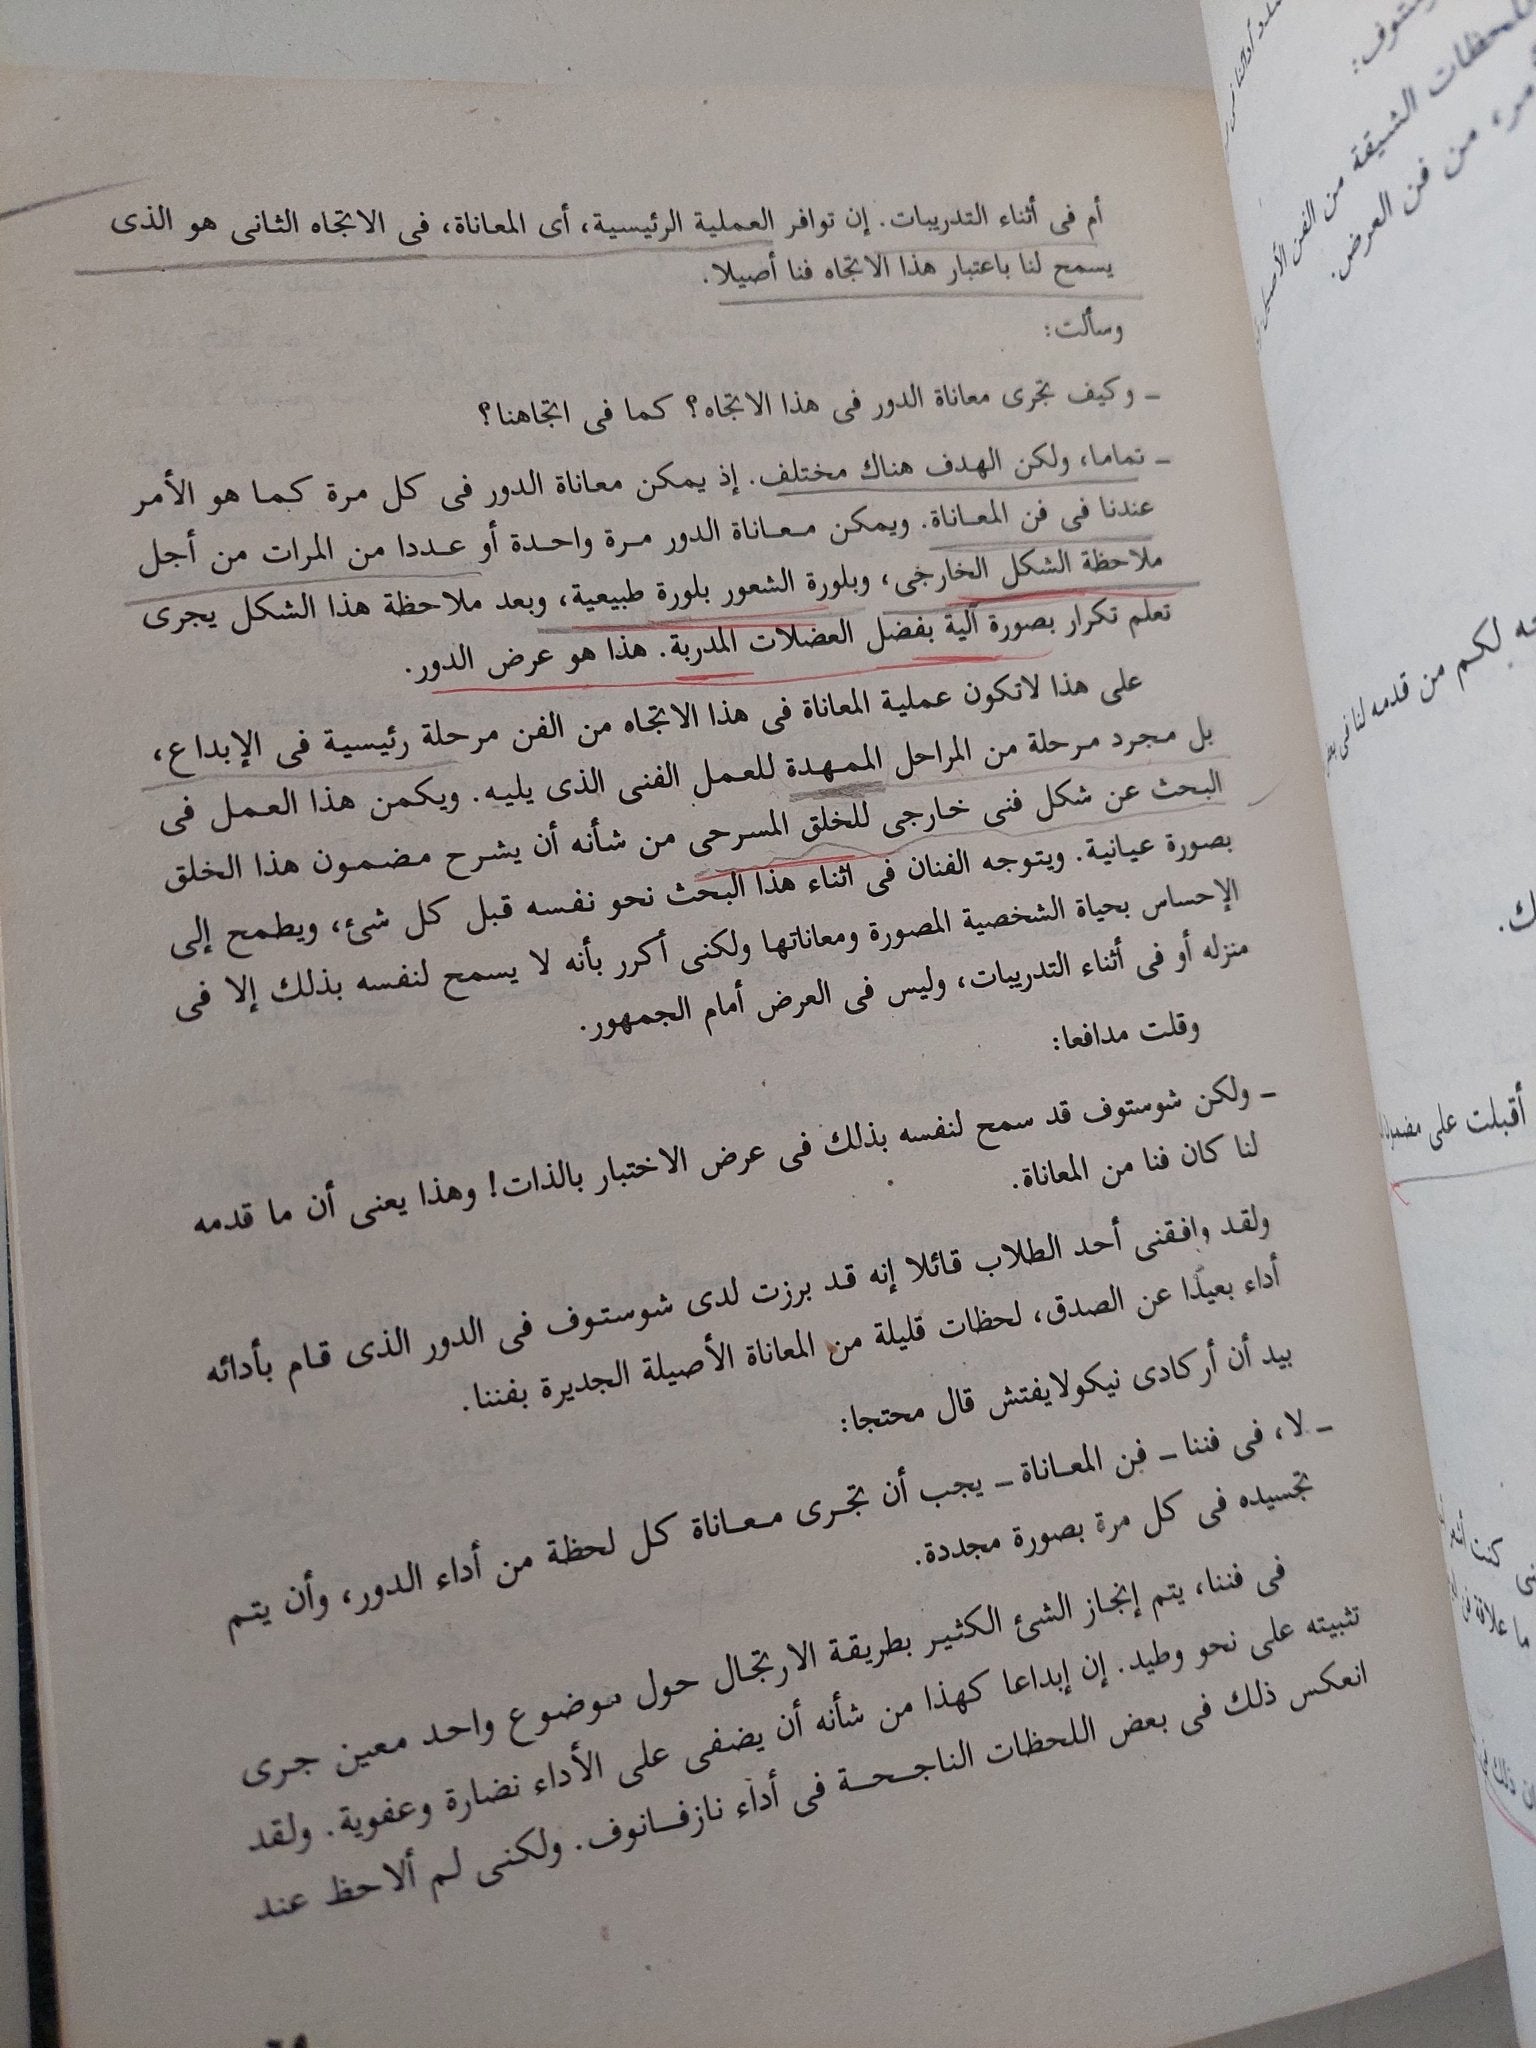 أم فى أثناء التدريبات. إن توافر العملية الرئيسية، أى المعاناة، فى الاتجاه الثانى هو الذى
يسمح لنا باعتبار هذا الاتجاه فنا أصيلا.
وسألت:
ـ وكيف تجرى معاناة الدور فى هذا الاتجاه؟ كما فى اتجاهنا؟
ـ تماما، ولكن الهدف هناك مختلف. إذ يمكن معاناة الدور فى كل مرة كما هو الأمر
عندنا فى فن المعاناة. ويمكن معاناة الدور مرة واحدة أو عددا من المرات من أجل
ملاحظة الشكل الخارجى، وبلورة الشعور بلورة طبيعية، وبعد ملاحظة هذا الشكل يجرى
تعلم تكرار بصورة آلية بفضل العضلات المدربة. هذا هو عرض الدور.
على هذا لاتكون عملية المعاناة فى هذا الاتجاه من الفن مرحلة رئيسية فى الإبداع،
بل مجرد مرحلة من المراحل الممهدة للعمل الفنى الذى يليه. ويكمن هذا العمل فى
البحث عن شكل فنى خارجى للخلق المسرحى من شأنه أن يشرح مضمون هذا الخلق
بصورة عيانية. ويتوجه الفنان فى اثناء هذا البحث نحو نفسه قبل كل شئ، ويطمح إلى
الإحساس بحياة الشخصية المصورة ومعاناتها ولكنى أكرر بأنه لا يسمح لنفسه بذلك إلا فى
منزله أو فى أثناء التدريبات، وليس فى العرض أمام الجمهور.
وقلت مدافعا:
ـ ولكن شوستوف قد سمح لنفسه بذلك فى عرض الاختبار بالذات! وهذا يعنى أن ما قدمه
لنا كان فنا من المعاناة.
ولقد وافقنى أحد الطلاب قائلا إنه قد برزت لدى شوستوف فى الدور الذى قام بأدائه
أداء بعيدًا عن الصدق، لحظات قليلة من المعاناة الأصيلة الجديرة بفننا.
بيد أن أركادى نيكولايفتش قال محتجا:
ـ لا، فى فننا ـ فن المعاناة ـ يجب أن تجرى معاناة كل لحظة من أداء الدور، وأن يتم
تجسيده فى كل مرة بصورة مجددة.
فى فننا، يتم إنجاز الشئ الكثير بطريقة الارتجال حول موضوع واحد معين جرى
تثبيته على نحو وطيد. إن إبداعا كهذا من شأنه أن يضفى على الأداء نضارة وعفوية. ولقد
انعكس ذلك فى بعض اللحظات الناجحة فى أداء نازفانوف. ولكنى لم ألاحظ عند
للحظات الشيقة من الفن
من فن العرض.
لكم من قدمه لنا فى
أقبلت على
كنت
ما علاقة